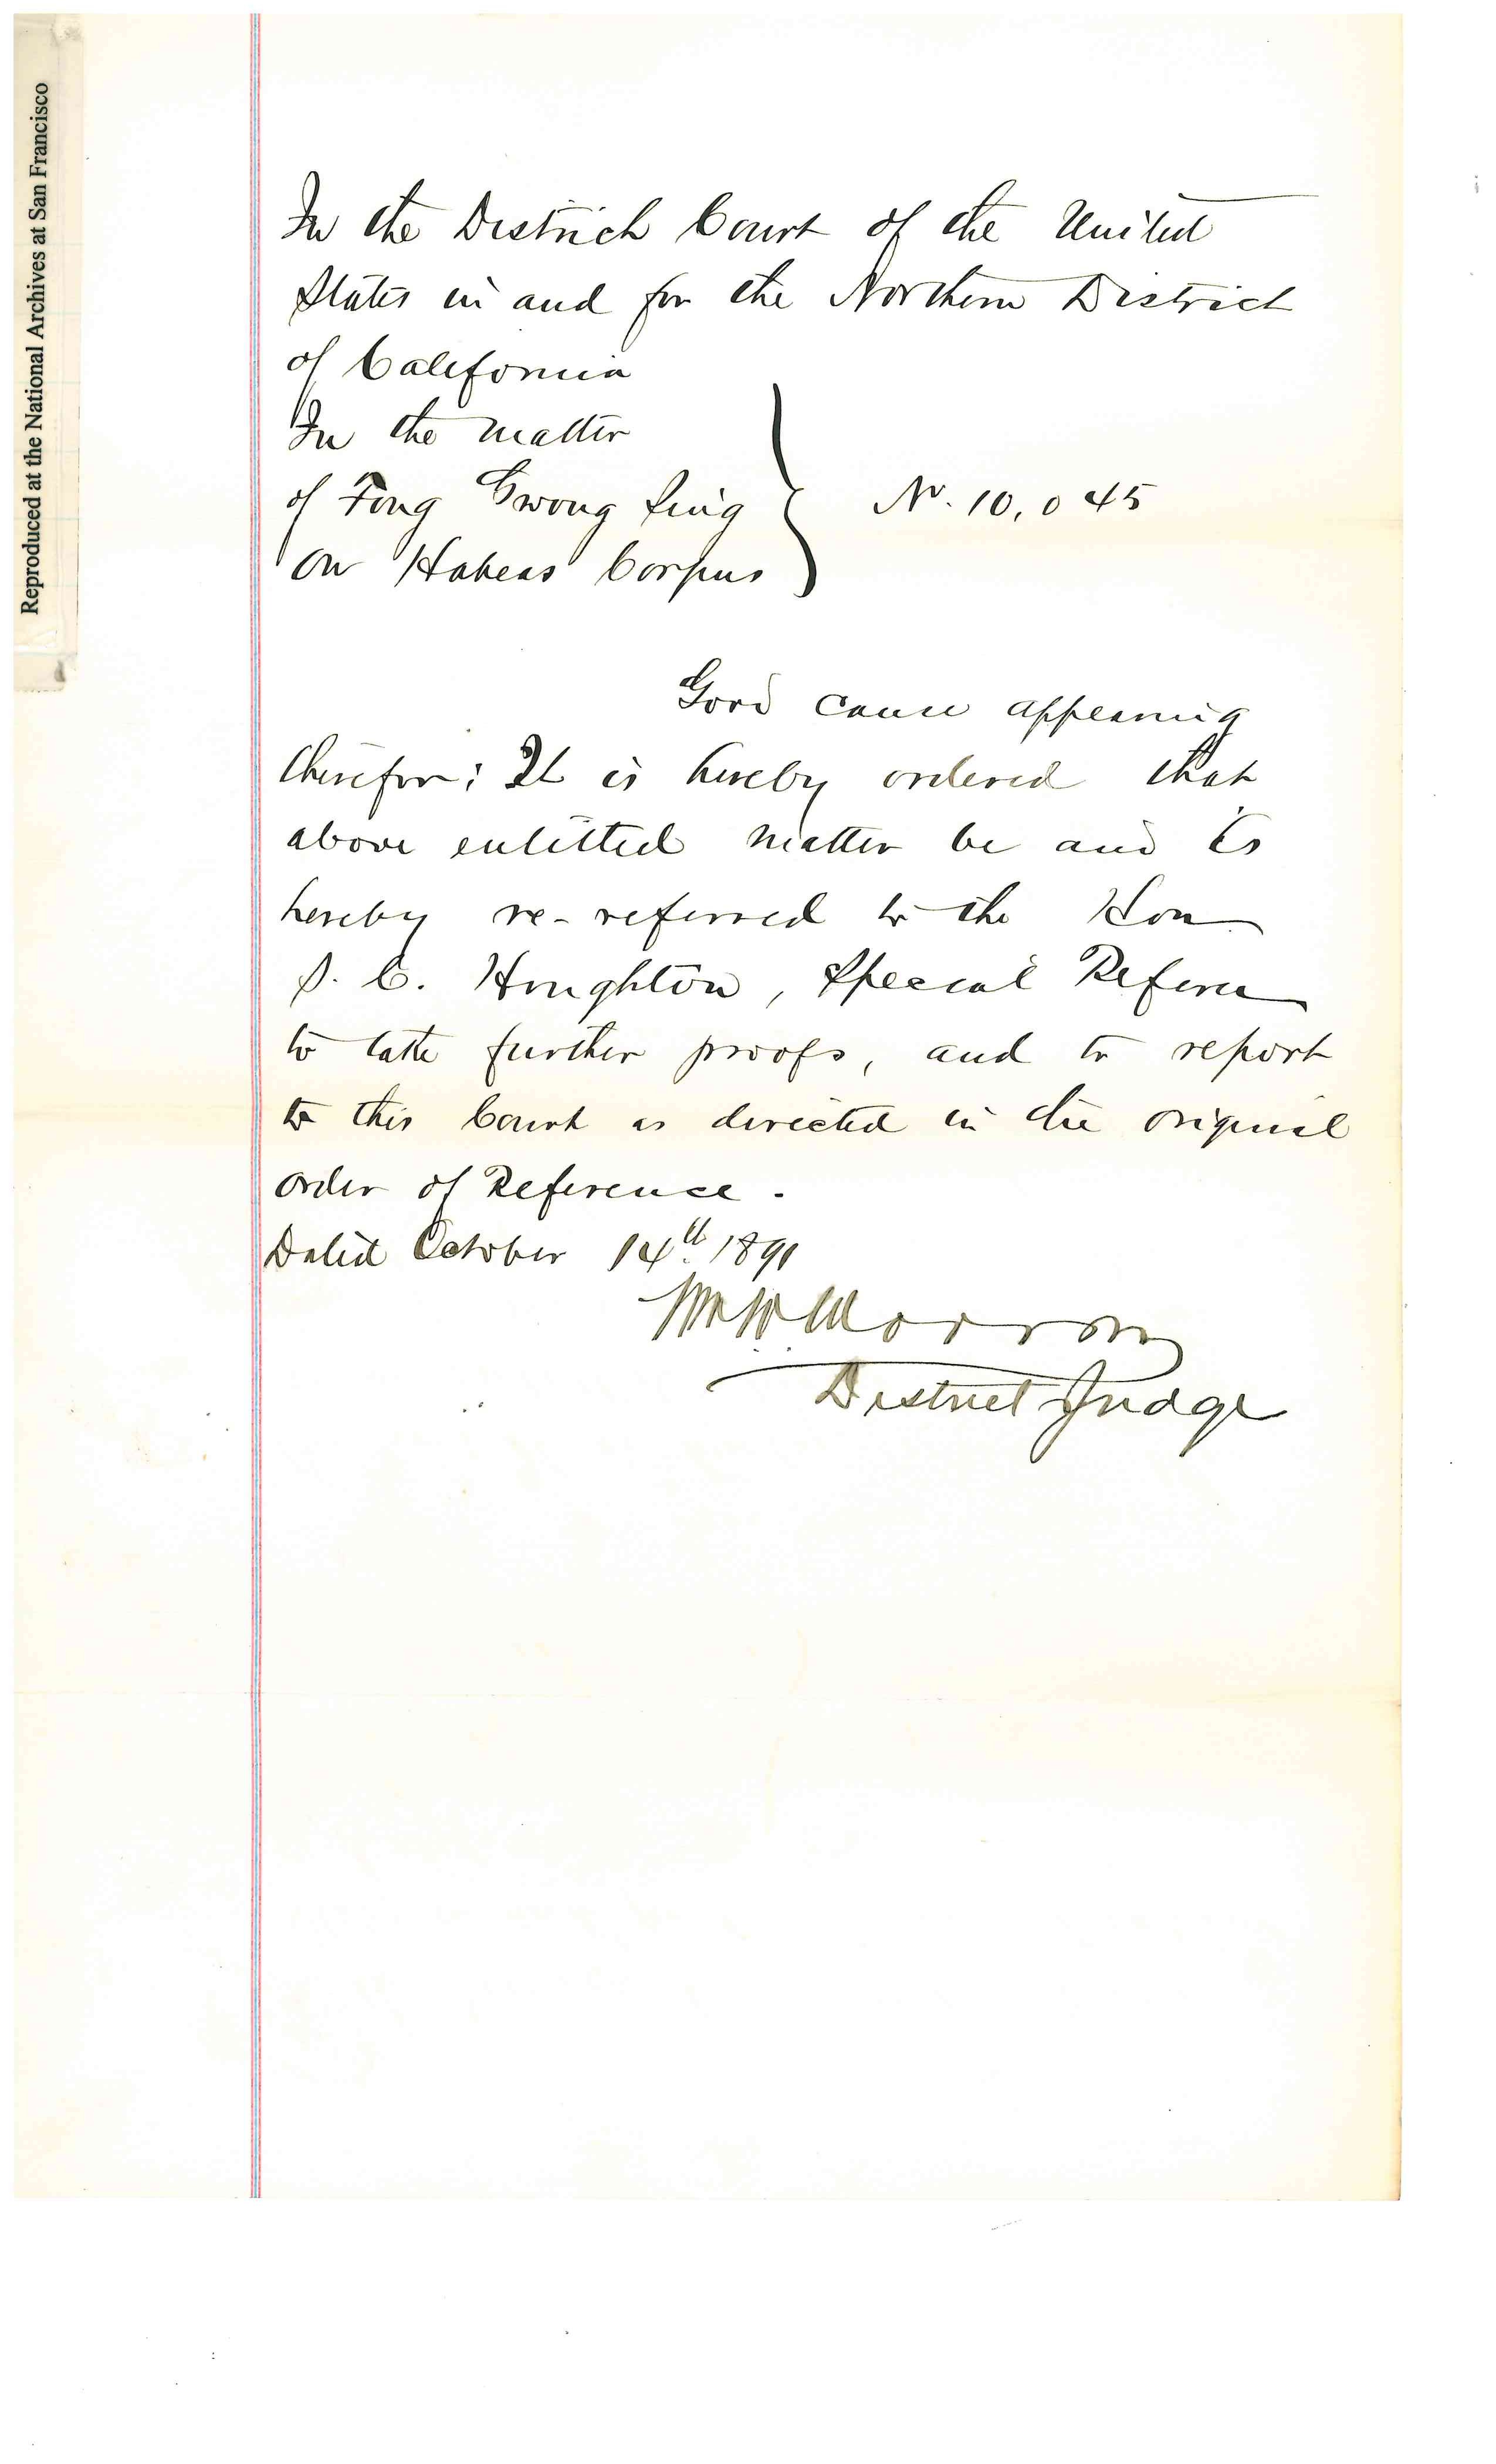 Reproduced at the National Archives at San Francisco
In the District Court of the United
States in and for the Northern District
of California
In the matter
of Fong Gwong Ling
On Habeas Corpus
No. 10,045
Good cause appearing
therefor: It is hereby ordered that
above entitled matter be and is
hereby re-referred to the Hon
S. C. Houghton, Special Referee
to take further proofs, and to report
to this Court as directed in the original
order of Reference.
Dated October 14th 1891
Wm W Morrow
District Judge